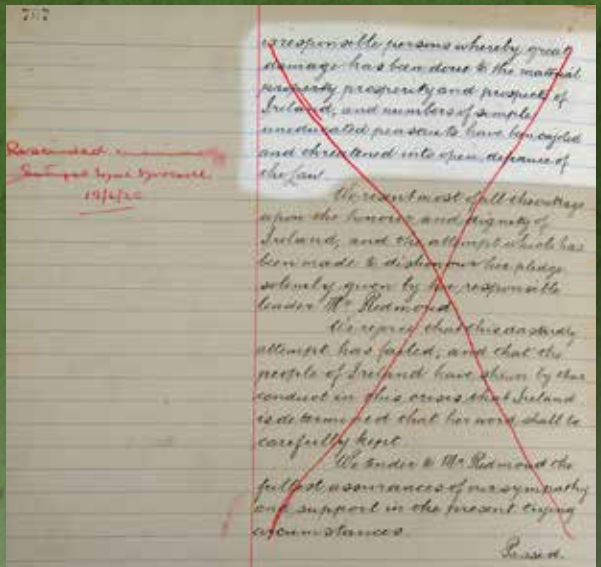 707
irresponsible persons whereby great
damage has been done to the material
property prosperity and prospects of
Ireland, and numbers of simple,
uneducated peasants to have been cajoled
and threatened into open defiance of
the Law.
We resent most of all the outrage
upon the honour and dignity of
Ireland, and the attempt which has
been made to dishonour her pledge
solemnly given by her responsible
leader Mr Redmond
We rejoice that this dastardly
attempt has failed, and that the
people of Ireland have shewn by their
conduct in this crisis that Ireland
is determined that her word shall be
carefully kept
We tender to Mr Redmond the
fullest assurances of our sympathy
and support in the present trying
circumstances.
Passed.
Rescinded